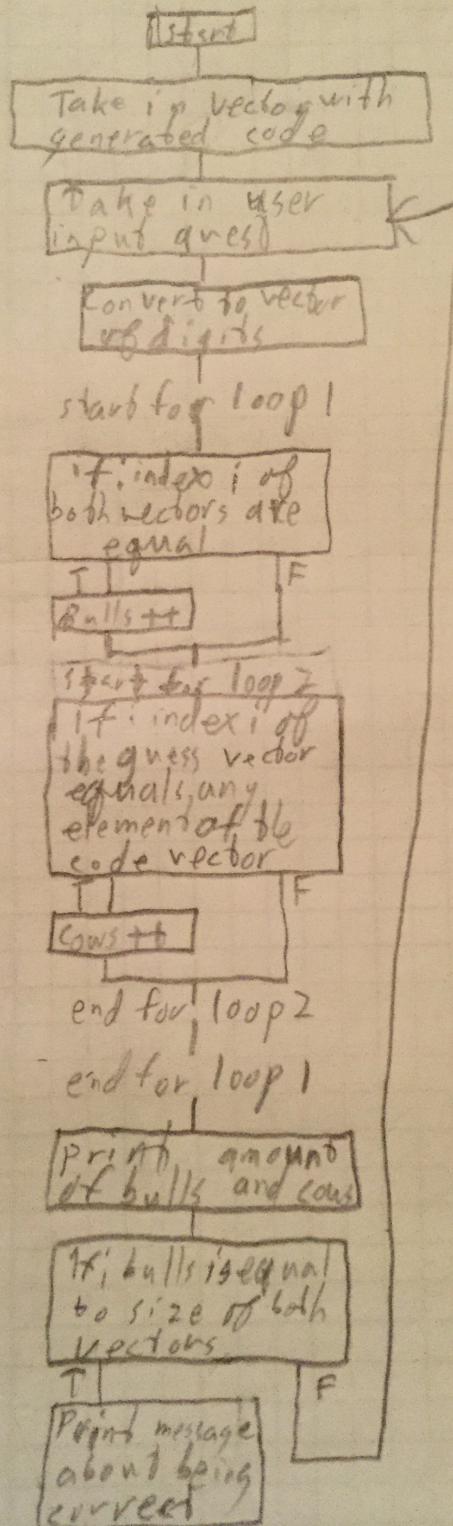 start
Take in vector with
generated code
Take in user
input guess
convert to vector
of digits
start for loop 1
if: index i of
both vectors are
equal
T F
Bulls ++
start for loop 2
if: index i of
the guess vector
equals any
element of the
code vector
T F
cows ++
end for loop 2
end for loop 1
print amount
of bulls and cows
If; bulls is equal
to size of both
vectors
T F
Print message
about being
correct